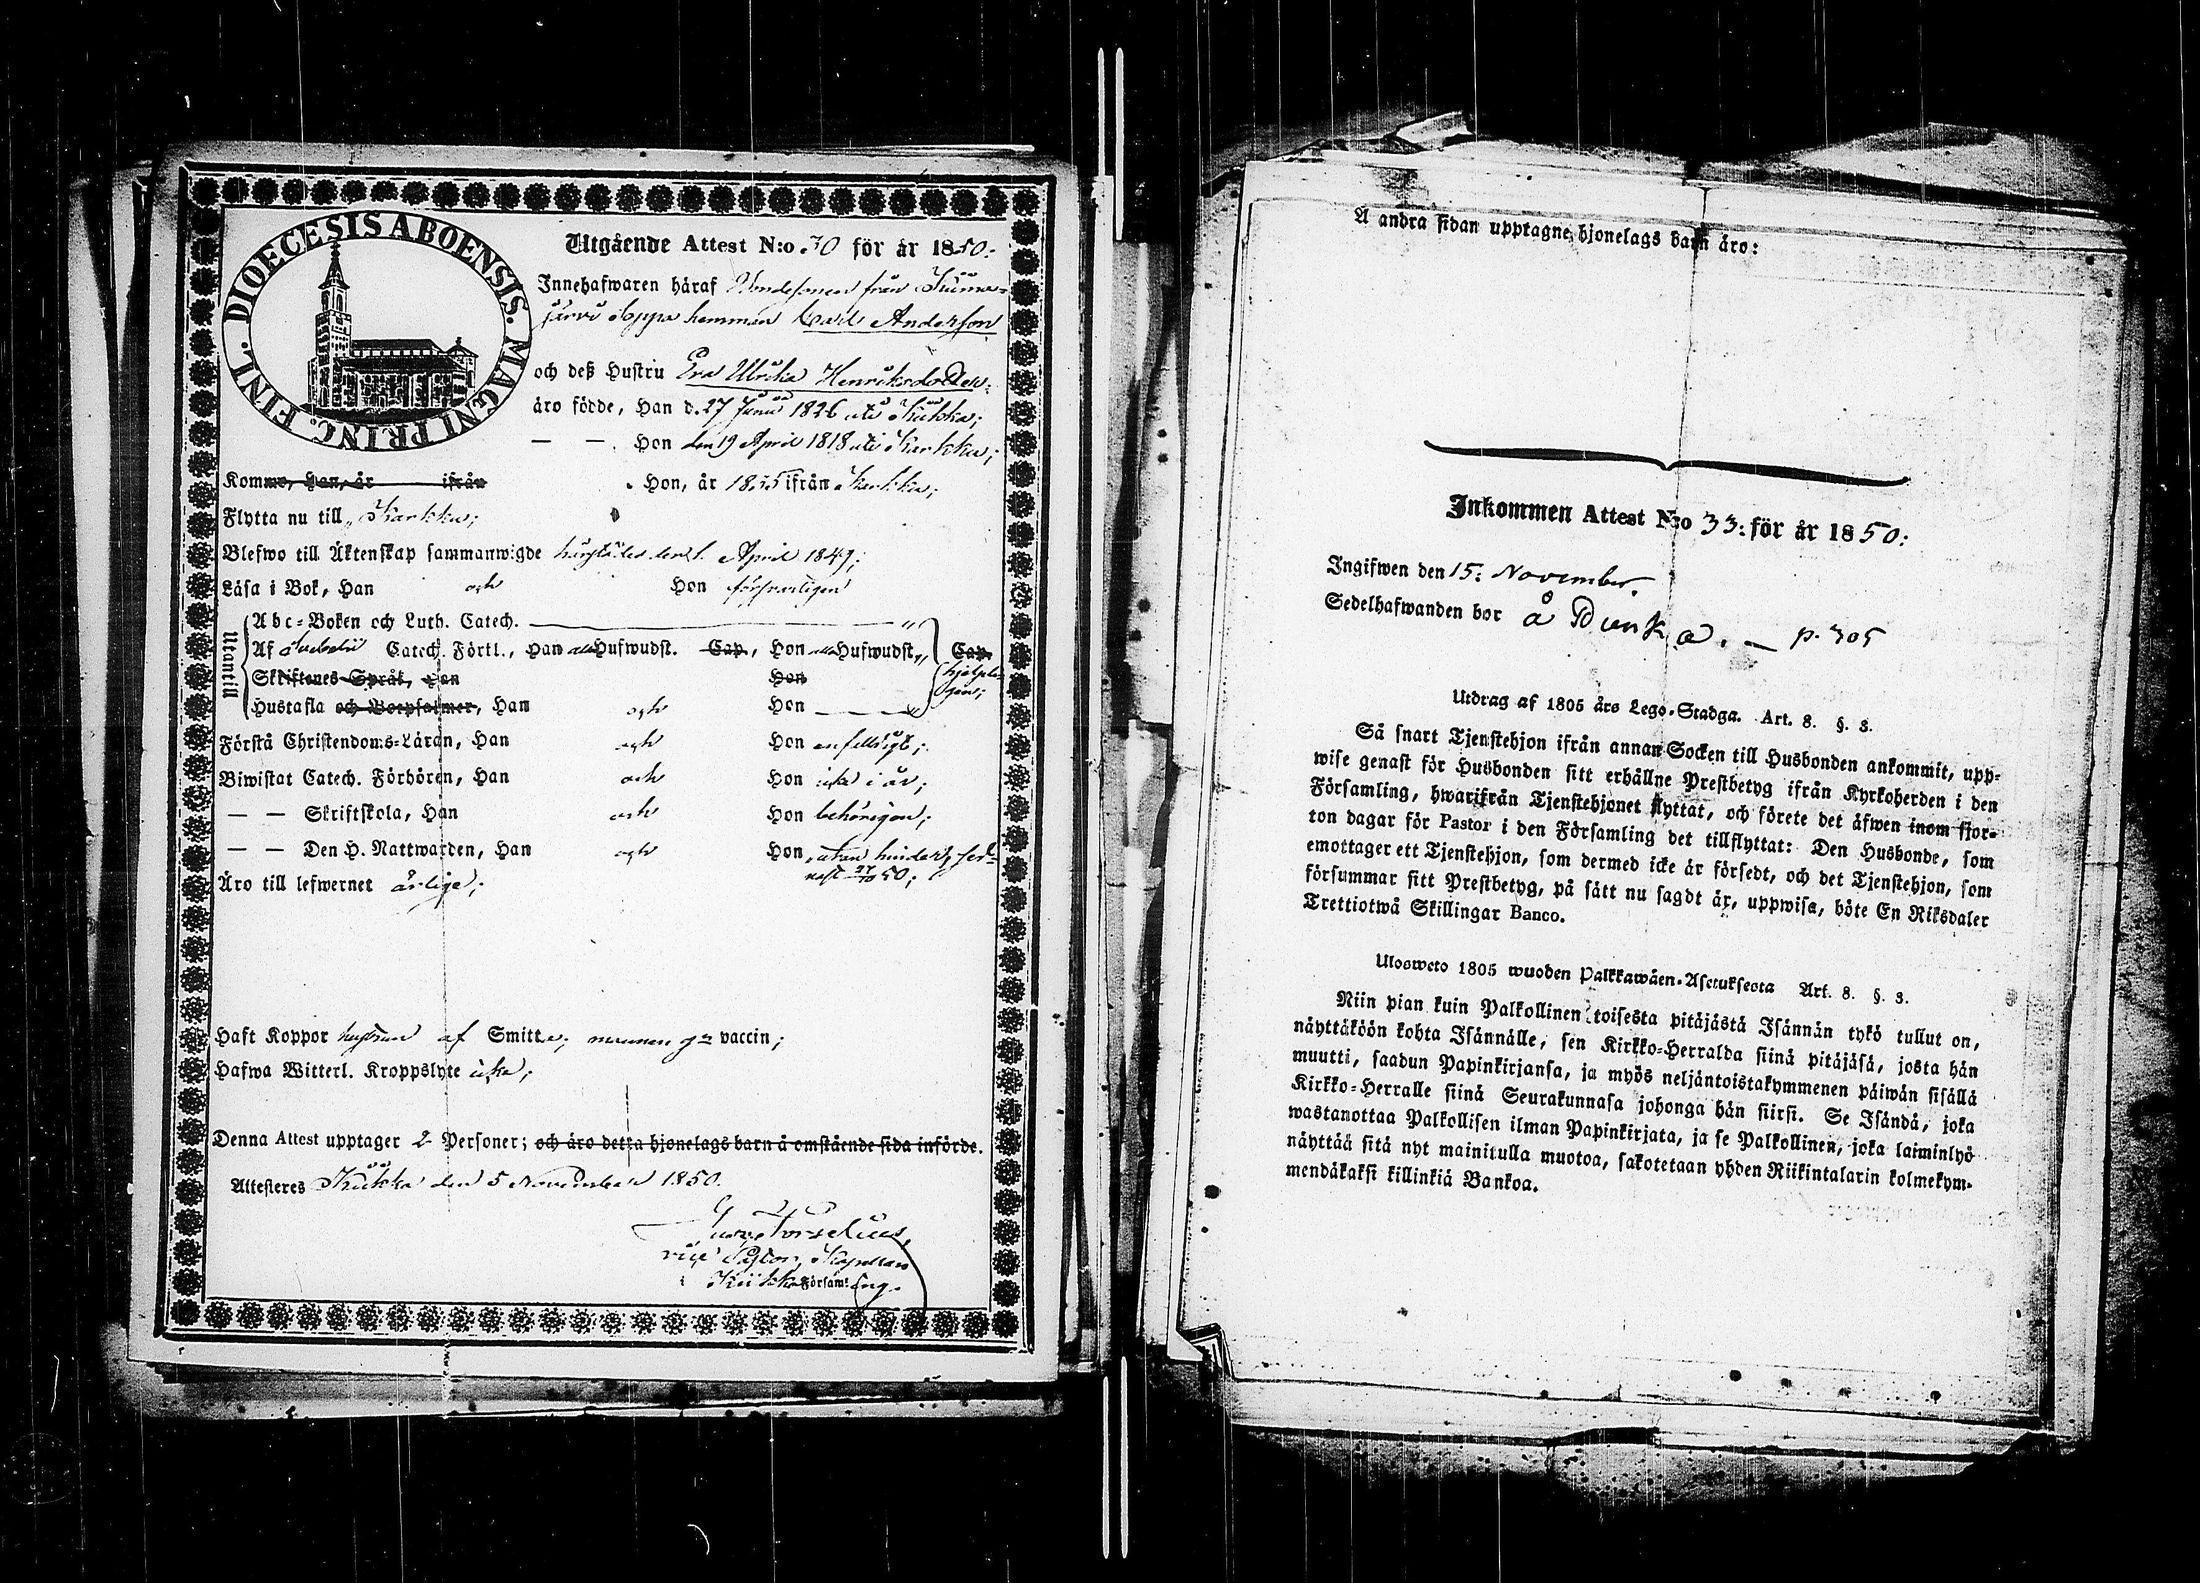 DIOECESIS ABOENSIS. MAGNI PRINC. FINL.
Utgående Attest N:o 30 för år 1850.
Innehafwaren häraf från Kiima-
järvi Seppä hemman Carl Anderson
och deß Hustru Eva Ulrika Henriksdotter
äro födde, Han d. 27 Junii 1826 uti Kiikka;
— — Hon den 19 April 1818 uti Karkku;
Kommo, Han, år ifrån . Hon, år 1835 ifrån Karkku;
Flytta nu till Karkku;
Blefwo till Äktenskap sammanwigde April 1849;
Läsa i Bok, Han och Hon försvarligen
Utantill
Abc-Boken och Luth. Catech. ———
Af Svebelii Catech. Förkl., Han alla Hufwudst. Cap., Hon alla Hufwudst., Cap.
Skriftenes Språk, Han Hon hjelpli-
gen;
Hustafla och Botpsalmer, Han och Hon ———
Förstå Christendoms-Läran, Han och Hon enfelligt;
Biwistat Catech. Förhören, Han och Hon icke i år;
— — Skriftskola, Han och Hon behörigen;
— — Den H. Nattwarden, Han och Hon utan hinder, sed-
nast 27/10 50;
Äro till lefwernet ärlige;
Haft Koppor hustrun af Smitta; mannen gm vaccin;
Hafwa Witterl. Kroppslyte icke;
Denna Attest upptager 2 Personer; och äro detta hjonelags barn å omstående sida införde.
Attesteres Kiikka den 5 November 1850.
vice Pastor, Kapellan
i Kiikka Församling.
Å andra sidan upptagne hjonelags barn äro:
Inkommen Attest N:o 33: för år 1850:
Ingifwen den 15: November.
Sedelhafwanden bor å Dunka. — p. 305
Utdrag af 1805 års Lego-Stadga. Art. 8. §. 3.
Så snart Tjenstehjon ifrån annan Socken till Husbonden ankommit, upp-
wise genast för Husbonden sitt erhållne Prestbetyg ifrån Kyrkoherden i den
Församling, hwarifrån Tjenstehjonet flyttat, och förete det äfwen inom fjor-
ton dagar för Pastor i den Församling det tillflyttat: Den Husbonde, som
emottager ett Tjenstehjon, som dermed icke är försedt, och det Tjenstehjon, som
försummar sitt Prestbetyg, på sätt nu sagdt är, uppwisa, böte En Riksdaler
Trettiotwå Skillingar Banco.
Ulosweto 1805 wuoden Palkkawäen-Asetuksesta Art. 8. §. 3.
Niin pian kuin Palkollinen toisesta pitäjästä Isännän tykö tullut on,
näyttäköön kohta Isännälle, sen Kirkko-Herralda siinä pitäjäsä, josta hän
muutti, saadun Papinkirjansa, ja myös neljäntoistakymmenen päiwän sisällä
Kirkko-Herralle siinä Seurakunnasa johonga hän siirsi. Se Isändä, joka
wastanottaa Palkollisen ilman Papinkirjata, ja se Palkollinen, joka laiminlyö
näyttää sitä nyt mainitulla muotoa, sakotetaan yhden Riikintalarin kolmekym-
mendäkaksi killinkiä Bankoa.